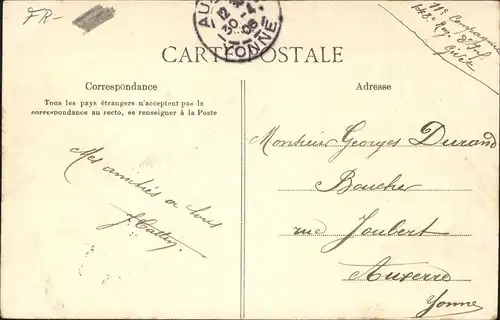 FR-
AU
12
30 -4
08
YONNE
11e Compagnie
148e Reg. d'Inf
Givet
CARTE POSTALE
Correspondance
Tous les pays étrangers n'acceptent pas la
correspondance au recto, se renseigner à la Poste
Mes amitiés a tous
Adresse
Monsieur Georges Durand
Boucher
rue Joubert
Auxerre
Yonne